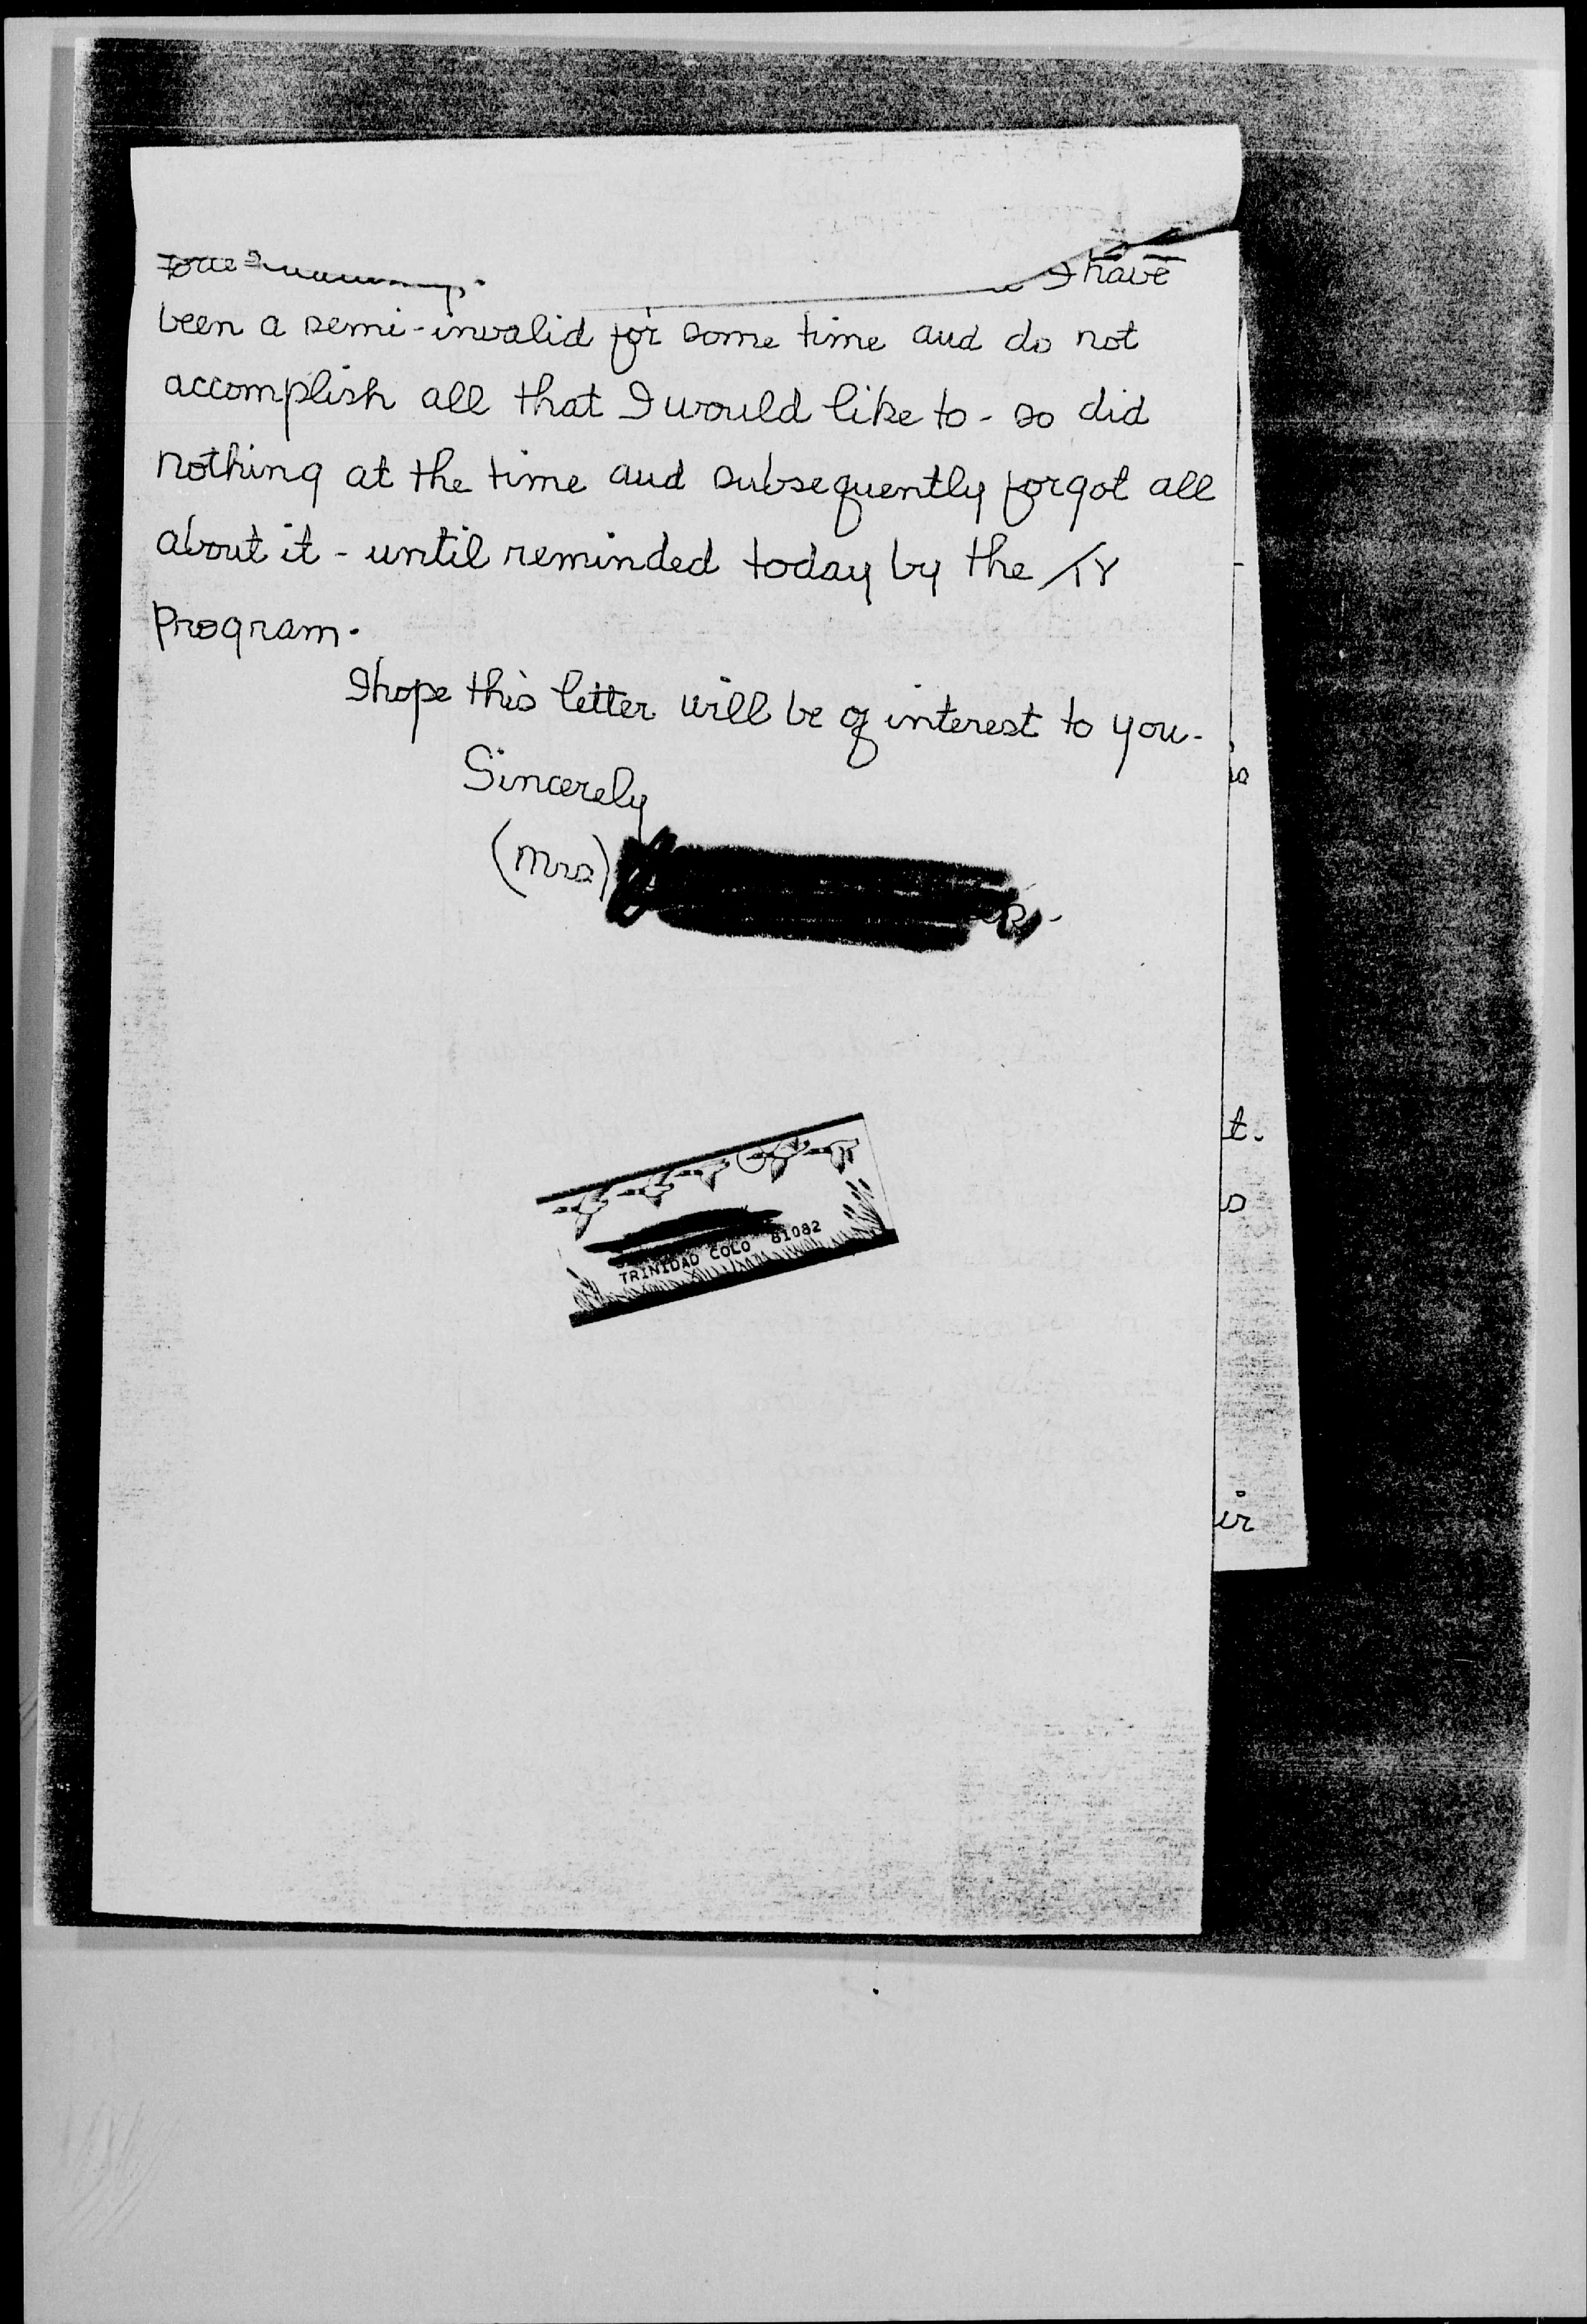 I have
been a semi-invalid for some time and do not
accomplish all that I would like to - so did
nothing at the time and subsequently forgot all
about it - until reminded today by the TV
Program.
I hope this letter will be of interest to you -
Sincerely
(Mrs)
TRINIDAD COLO 81082
t.
s
er